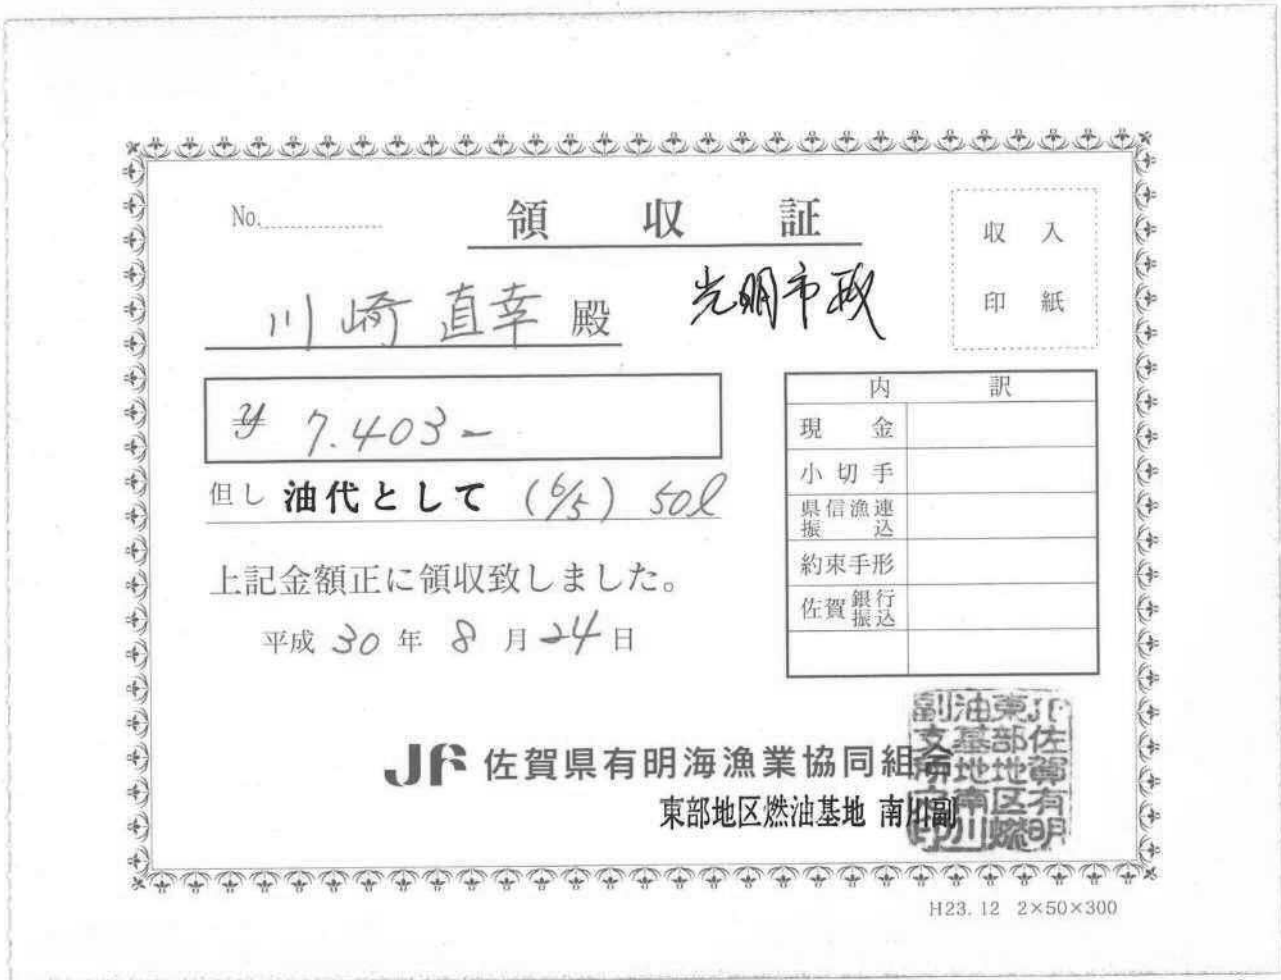 No.
領収証
収入
印紙
川崎 直幸 殿
光明市政
¥ 7.403-
但し 油代として (6/5) 50ℓ
上記金額正に領収致しました。
平成 30 年 8 月 24 日
内訳
現金
小切手
県信漁連振込
約束手形
佐賀銀行振込
JF 佐賀県有明海漁業協同組合
東部地区燃油基地 南川副
JF佐賀有明
東部地区燃
油基地南川
副支所之印
H23.12 2×50×300